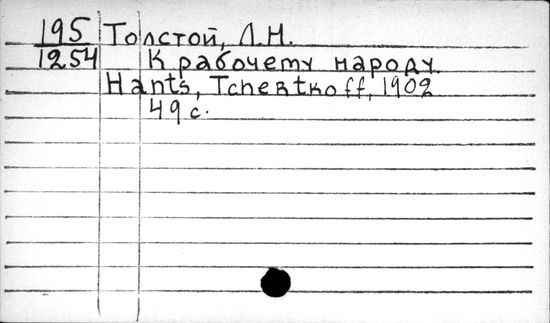 195 Толстой, Л.Н.
1254 К рабочему народу.
Hants, Tchertkoff, 1902
49 с.